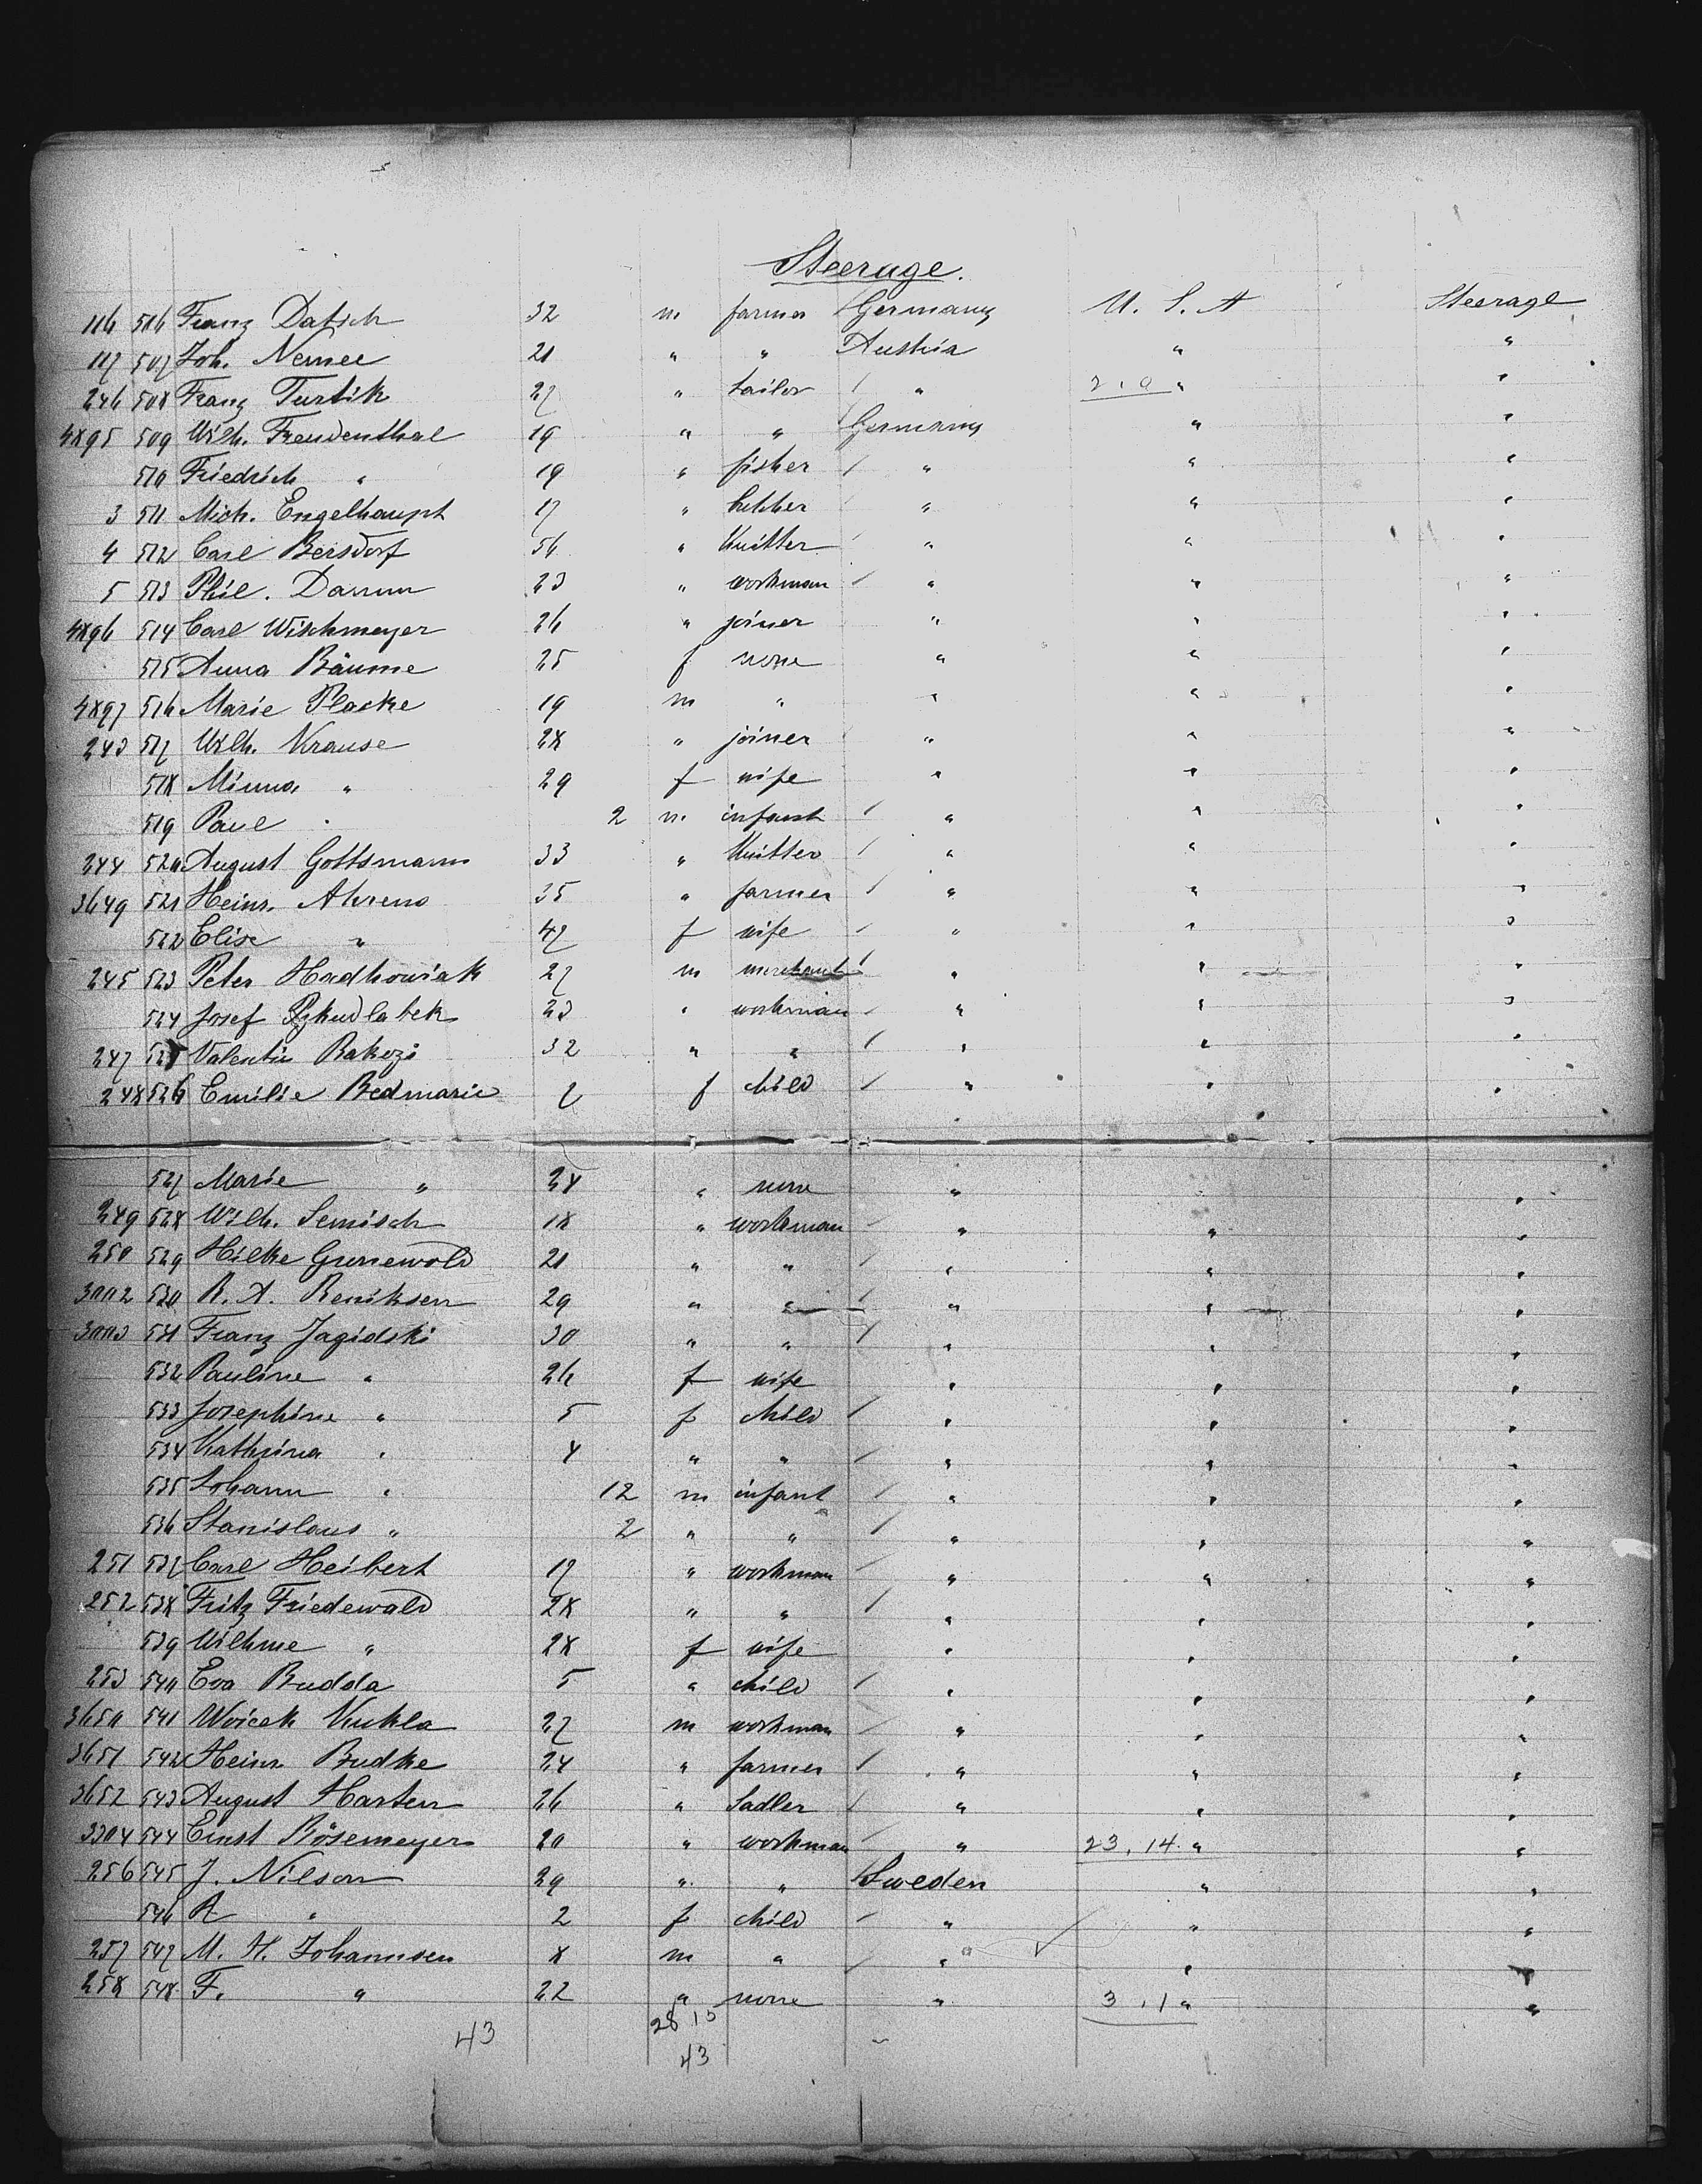 Steerage.
116 506 Franz Datsch 32 m farmer Germany U. S. A Steerage
117 507 Joh. Nemec 21 " " Austria " "
246 508 Franz Turtik 27 " tailor " 2,0 " "
4895 509 Wilh. Freudenthal 19 " " Germany " "
510 Friedrich " 19 " fisher " " "
3 511 Mich. Engelhaupt 17 " " " "
4 512 Carl Bersdorf 56 " Knitter " " "
5 513 Phil. Damm 23 " workman " " "
4896 514 Carl Wischmeyer 26 " joiner " " "
515 Anna Bäume 25 f none " " "
4897 516 Marie Placke 19 m " " " "
243 517 Wilh. Krause 28 " joiner " " "
518 Minna " 29 f wife " " "
519 Paul " 2 m infant " " "
244 520 August Gottsmann 33 " Knitter " " "
3649 521 Heinr. Ahrens 35 " farmer " " "
522 Elise " 47 f wife " " "
245 523 Peter Hadkowiak 27 m merchant " " "
524 Josef 23 " workman " " "
247 525 Valentin Rakozi 32 " " " " "
248 526 Emilie Bedmarie 7 f child " " "
527 Marie " 24 " none " "
249 528 Wilh. Semisch 18 " workman " " "
250 529 Hilke Grunewold 21 " " " " "
3002 530 R. A. Reniksen 29 " " " " "
3003 531 Franz Jagidski 30 " " " " "
532 Pauline " 26 f wife " " "
533 Josephine " 5 f child " " "
534 Kathrina " 4 " " " " "
535 Johann " 12 m infant " " "
536 Stanislaus " 2 " " " " "
251 537 Carl Heibert 17 " workman " " "
252 538 Fritz Friedewald 28 " " " " "
539 Wilhme " 28 f wife " " "
253 540 Eva Budda 5 " child " " "
3650 541 Woicek Kukla 27 m workman " " "
3651 542 Heinr Budke 24 " farmer " " "
3652 543 August Harten 26 " Sadler " " "
3304 544 Ernst Bösemeyer 20 " workman " 23,14. " "
256 545 J. Nilson 29 " " Sweden " "
546 A " 2 f child " " "
257 547 M. H. Johannsen 8 m " " "
258 548 F. " 22 " none " 3,1 " "
43 28 15
43